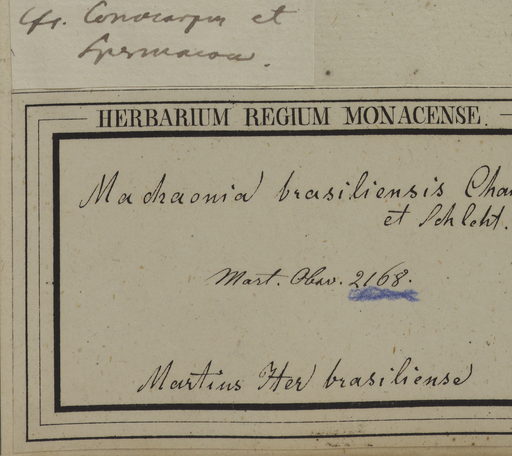 cfr. Conocarpus et
Spermacoce.
HERBARIUM REGIUM MONACENSE.
Machaonia brasiliensis Cha
et Schlcht.
Mart. Obsv. 2168.
Martius Her brasiliense